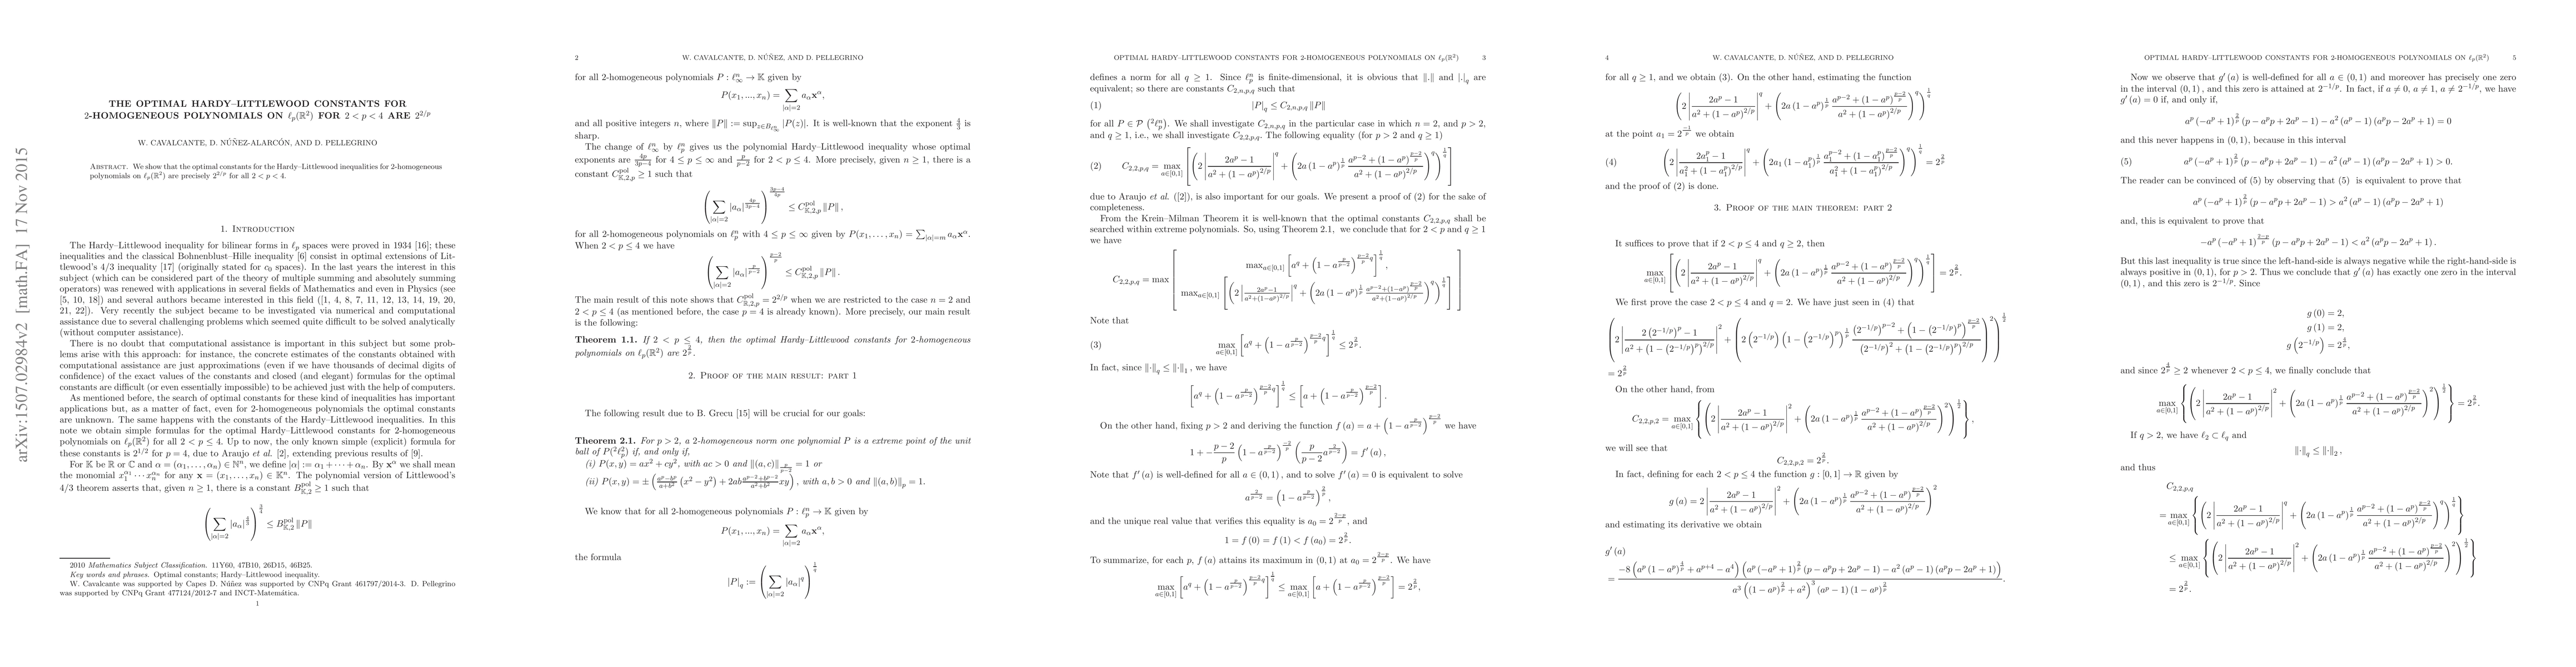 arXiv:1507.02984v2 [math.FA] 17 Nov 2015
THE OPTIMAL HARDY–LITTLEWOOD CONSTANTS FOR
2-HOMOGENEOUS POLYNOMIALS ON ℓp(ℝ²) FOR 2 < p < 4 ARE 2^{2/p}
W. CAVALCANTE, D. NÚÑEZ-ALARCÓN, AND D. PELLEGRINO
Abstract. We show that the optimal constants for the Hardy–Littlewood inequalities for 2-homogeneous
polynomials on ℓp(ℝ²) are precisely 2^{2/p} for all 2 < p < 4.
1. Introduction
The Hardy–Littlewood inequality for bilinear forms in ℓp spaces were proved in 1934 [16]; these
inequalities and the classical Bohnenblust–Hille inequality [6] consist in optimal extensions of Lit-
tlewood's 4/3 inequality [17] (originally stated for c0 spaces). In the last years the interest in this
subject (which can be considered part of the theory of multiple summing and absolutely summing
operators) was renewed with applications in several fields of Mathematics and even in Physics (see
[5, 10, 18]) and several authors became interested in this field ([1, 4, 8, 7, 11, 12, 13, 14, 19, 20,
21, 22]). Very recently the subject became to be investigated via numerical and computational
assistance due to several challenging problems which seemed quite difficult to be solved analytically
(without computer assistance).
There is no doubt that computational assistance is important in this subject but some prob-
lems arise with this approach: for instance, the concrete estimates of the constants obtained with
computational assistance are just approximations (even if we have thousands of decimal digits of
confidence) of the exact values of the constants and closed (and elegant) formulas for the optimal
constants are difficult (or even essentially impossible) to be achieved just with the help of computers.
As mentioned before, the search of optimal constants for these kind of inequalities has important
applications but, as a matter of fact, even for 2-homogeneous polynomials the optimal constants
are unknown. The same happens with the constants of the Hardy–Littlewood inequalities. In this
note we obtain simple formulas for the optimal Hardy–Littlewood constants for 2-homogeneous
polynomials on ℓp(ℝ²) for all 2 < p ≤ 4. Up to now, the only known simple (explicit) formula for
these constants is 2^{1/2} for p = 4, due to Araujo et al. [2], extending previous results of [9].
For 𝕂 be ℝ or ℂ and α = (α1, ..., αn) ∈ ℕⁿ, we define |α| := α1 + ··· + αn. By x^α we shall mean
the monomial x1^{α1} ··· xn^{αn} for any x = (x1, ..., xn) ∈ 𝕂ⁿ. The polynomial version of Littlewood's
4/3 theorem asserts that, given n ≥ 1, there is a constant B^{pol}_{𝕂,2} ≥ 1 such that
(∑_{|α|=2} |aα|^{4/3})^{3/4} ≤ B^{pol}_{𝕂,2} ‖P‖
2010 Mathematics Subject Classification. 11Y60, 47B10, 26D15, 46B25.
Key words and phrases. Optimal constants; Hardy–Littlewood inequality.
W. Cavalcante was supported by Capes D. Núñez was supported by CNPq Grant 461797/2014-3. D. Pellegrino
was supported by CNPq Grant 477124/2012-7 and INCT-Matemática.
1
2 W. CAVALCANTE, D. NÚÑEZ, AND D. PELLEGRINO
for all 2-homogeneous polynomials P : ℓ∞ⁿ → 𝕂 given by
P(x1, ..., xn) = ∑_{|α|=2} aα x^α,
and all positive integers n, where ‖P‖ := sup_{z∈B_{ℓ∞ⁿ}} |P(z)|. It is well-known that the exponent 4/3 is
sharp.
The change of ℓ∞ⁿ by ℓpⁿ gives us the polynomial Hardy–Littlewood inequality whose optimal
exponents are 4p/(3p−4) for 4 ≤ p ≤ ∞ and p/(p−2) for 2 < p ≤ 4. More precisely, given n ≥ 1, there is a
constant C^{pol}_{𝕂,2,p} ≥ 1 such that
(∑_{|α|=2} |aα|^{4p/(3p−4)})^{(3p−4)/4p} ≤ C^{pol}_{𝕂,2,p} ‖P‖,
for all 2-homogeneous polynomials on ℓpⁿ with 4 ≤ p ≤ ∞ given by P(x1, ..., xn) = ∑_{|α|=m} aα x^α.
When 2 < p ≤ 4 we have
(∑_{|α|=2} |aα|^{p/(p−2)})^{(p−2)/p} ≤ C^{pol}_{𝕂,2,p} ‖P‖.
The main result of this note shows that C^{pol}_{ℝ,2,p} = 2^{2/p} when we are restricted to the case n = 2 and
2 < p ≤ 4 (as mentioned before, the case p = 4 is already known). More precisely, our main result
is the following:
Theorem 1.1. If 2 < p ≤ 4, then the optimal Hardy–Littlewood constants for 2-homogeneous
polynomials on ℓp(ℝ²) are 2^{2/p}.
2. Proof of the main result: part 1
The following result due to B. Grecu [15] will be crucial for our goals:
Theorem 2.1. For p > 2, a 2-homogeneous norm one polynomial P is a extreme point of the unit
ball of P(²ℓp²) if, and only if,
(i) P(x, y) = ax² + cy², with ac > 0 and ‖(a, c)‖_{p/(p−2)} = 1 or
(ii) P(x, y) = ± ((a^p−b^p)/(a²+b²) (x² − y²) + 2ab (a^{p−2}+b^{p−2})/(a²+b²) xy), with a, b > 0 and ‖(a, b)‖_p = 1.
We know that for all 2-homogeneous polynomials P : ℓpⁿ → 𝕂 given by
P(x1, ..., xn) = ∑_{|α|=2} aα x^α,
the formula
|P|_q := (∑_{|α|=2} |aα|^q)^{1/q}
OPTIMAL HARDY–LITTLEWOOD CONSTANTS FOR 2-HOMOGENEOUS POLYNOMIALS ON ℓp(ℝ²) 3
defines a norm for all q ≥ 1. Since ℓpⁿ is finite-dimensional, it is obvious that ‖.‖ and |.|_q are
equivalent; so there are constants C_{2,n,p,q} such that
(1) |P|_q ≤ C_{2,n,p,q} ‖P‖
for all P ∈ P(²ℓpⁿ). We shall investigate C_{2,n,p,q} in the particular case in which n = 2, and p > 2,
and q ≥ 1, i.e., we shall investigate C_{2,2,p,q}. The following equality (for p > 2 and q ≥ 1)
(2) C_{2,2,p,q} = max_{a∈[0,1]} [(2 |(2a^p − 1)/(a² + (1 − a^p)^{2/p})|^q + (2a (1 − a^p)^{1/p} (a^{p−2} + (1 − a^p)^{(p−2)/p})/(a² + (1 − a^p)^{2/p}))^q)^{1/q}]
due to Araujo et al. ([2]), is also important for our goals. We present a proof of (2) for the sake of
completeness.
From the Krein–Milman Theorem it is well-known that the optimal constants C_{2,2,p,q} shall be
searched within extreme polynomials. So, using Theorem 2.1, we conclude that for 2 < p and q ≥ 1
we have
C_{2,2,p,q} = max [ max_{a∈[0,1]} [a^q + (1 − a^{p/(p−2)})^{((p−2)/p)q}]^{1/q}, max_{a∈[0,1]} [(2 |(2a^p−1)/(a²+(1−a^p)^{2/p})|^q + (2a (1 − a^p)^{1/p} (a^{p−2}+(1−a^p)^{(p−2)/p})/(a²+(1−a^p)^{2/p}))^q)^{1/q}] ]
Note that
(3) max_{a∈[0,1]} [a^q + (1 − a^{p/(p−2)})^{((p−2)/p)q}]^{1/q} ≤ 2^{2/p}.
In fact, since ‖·‖_q ≤ ‖·‖_1, we have
[a^q + (1 − a^{p/(p−2)})^{((p−2)/p)q}]^{1/q} ≤ [a + (1 − a^{p/(p−2)})^{(p−2)/p}].
On the other hand, fixing p > 2 and deriving the function f(a) = a + (1 − a^{p/(p−2)})^{(p−2)/p} we have
1 + (p−2)/p (1 − a^{p/(p−2)})^{−2/p} (p/(p−2) a^{2/(p−2)}) = f′(a),
Note that f′(a) is well-defined for all a ∈ (0, 1) and, to solve f′(a) = 0 is equivalent to solve
a^{2/(p−2)} = (1 − a^{p/(p−2)})^{2/p},
and the unique real value that verifies this equality is a0 = 2^{(2−p)/p}, and
1 = f(0) = f(1) < f(a0) = 2^{2/p}.
To summarize, for each p, f(a) attains its maximum in (0, 1) at a0 = 2^{(2−p)/p}. We have
max_{a∈[0,1]} [a^q + (1 − a^{p/(p−2)})^{((p−2)/p)q}]^{1/q} ≤ max_{a∈[0,1]} [a + (1 − a^{p/(p−2)})^{(p−2)/p}] = 2^{2/p},
4 W. CAVALCANTE, D. NÚÑEZ, AND D. PELLEGRINO
for all q ≥ 1, and we obtain (3). On the other hand, estimating the function
(2 |(2a^p − 1)/(a² + (1 − a^p)^{2/p})|^q + (2a (1 − a^p)^{1/p} (a^{p−2} + (1 − a^p)^{(p−2)/p})/(a² + (1 − a^p)^{2/p}))^q)^{1/q}
at the point a1 = 2^{−1/p} we obtain
(4) (2 |(2a1^p − 1)/(a1² + (1 − a1^p)^{2/p})|^q + (2a1 (1 − a1^p)^{1/p} (a1^{p−2} + (1 − a1^p)^{(p−2)/p})/(a1² + (1 − a1^p)^{2/p}))^q)^{1/q} = 2^{2/p}
and the proof of (2) is done.
3. Proof of the main theorem: part 2
It suffices to prove that if 2 < p ≤ 4 and q ≥ 2, then
max_{a∈[0,1]} [(2 |(2a^p − 1)/(a² + (1 − a^p)^{2/p})|^q + (2a (1 − a^p)^{1/p} (a^{p−2} + (1 − a^p)^{(p−2)/p})/(a² + (1 − a^p)^{2/p}))^q)^{1/q}] = 2^{2/p}.
We first prove the case 2 < p ≤ 4 and q = 2. We have just seen in (4) that
(2 |(2 (2^{−1/p})^p − 1)/(a² + (1 − (2^{−1/p})^p)^{2/p})|² + (2 (2^{−1/p}) (1 − (2^{−1/p})^p)^{1/p} ((2^{−1/p})^{p−2} + (1 − (2^{−1/p})^p)^{(p−2)/p})/((2^{−1/p})² + (1 − (2^{−1/p})^p)^{2/p}))²)^{1/2}
= 2^{2/p}
On the other hand, from
C_{2,2,p,2} = max_{a∈[0,1]} {(2 |(2a^p − 1)/(a² + (1 − a^p)^{2/p})|² + (2a (1 − a^p)^{1/p} (a^{p−2} + (1 − a^p)^{(p−2)/p})/(a² + (1 − a^p)^{2/p}))²)^{1/2}},
we will see that
C_{2,2,p,2} = 2^{2/p}.
In fact, defining for each 2 < p ≤ 4 the function g : [0, 1] → ℝ given by
g(a) = 2 |(2a^p − 1)/(a² + (1 − a^p)^{2/p})|² + (2a (1 − a^p)^{1/p} (a^{p−2} + (1 − a^p)^{(p−2)/p})/(a² + (1 − a^p)^{2/p}))²
and estimating its derivative we obtain
g′(a)
= −8 (a^p (1 − a^p)^{4/p} + a^{p+4} − a⁴) (a^p (−a^p + 1)^{2/p} (p − a^p p + 2a^p − 1) − a² (a^p − 1) (a^p p − 2a^p + 1)) / (a³ ((1 − a^p)^{2/p} + a²)³ (a^p − 1) (1 − a^p)^{2/p}).
OPTIMAL HARDY–LITTLEWOOD CONSTANTS FOR 2-HOMOGENEOUS POLYNOMIALS ON ℓp(ℝ²) 5
Now we observe that g′(a) is well-defined for all a ∈ (0, 1) and moreover has precisely one zero
in the interval (0, 1), and this zero is attained at 2^{−1/p}. In fact, if a ≠ 0, a ≠ 1, a ≠ 2^{−1/p}, we have
g′(a) = 0 if, and only if,
a^p (−a^p + 1)^{2/p} (p − a^p p + 2a^p − 1) − a² (a^p − 1) (a^p p − 2a^p + 1) = 0
and this never happens in (0, 1), because in this interval
(5) a^p (−a^p + 1)^{2/p} (p − a^p p + 2a^p − 1) − a² (a^p − 1) (a^p p − 2a^p + 1) > 0.
The reader can be convinced of (5) by observing that (5) is equivalent to prove that
a^p (−a^p + 1)^{2/p} (p − a^p p + 2a^p − 1) > a² (a^p − 1) (a^p p − 2a^p + 1)
and, this is equivalent to prove that
−a^p (−a^p + 1)^{(2−p)/p} (p − a^p p + 2a^p − 1) < a² (a^p p − 2a^p + 1).
But this last inequality is true since the left-hand-side is always negative while the right-hand-side is
always positive in (0, 1), for p > 2. Thus we conclude that g′(a) has exactly one zero in the interval
(0, 1), and this zero is 2^{−1/p}. Since
g(0) = 2,
g(1) = 2,
g(2^{−1/p}) = 2^{4/p},
and since 2^{4/p} ≥ 2 whenever 2 < p ≤ 4, we finally conclude that
max_{a∈[0,1]} {(2 |(2a^p − 1)/(a² + (1 − a^p)^{2/p})|² + (2a (1 − a^p)^{1/p} (a^{p−2} + (1 − a^p)^{(p−2)/p})/(a² + (1 − a^p)^{2/p}))²)^{1/2}} = 2^{2/p}.
If q > 2, we have ℓ2 ⊂ ℓq and
‖·‖_q ≤ ‖·‖_2,
and thus
C_{2,2,p,q}
= max_{a∈[0,1]} {(2 |(2a^p − 1)/(a² + (1 − a^p)^{2/p})|^q + (2a (1 − a^p)^{1/p} (a^{p−2} + (1 − a^p)^{(p−2)/p})/(a² + (1 − a^p)^{2/p}))^q)^{1/q}}
≤ max_{a∈[0,1]} {(2 |(2a^p − 1)/(a² + (1 − a^p)^{2/p})|² + (2a (1 − a^p)^{1/p} (a^{p−2} + (1 − a^p)^{(p−2)/p})/(a² + (1 − a^p)^{2/p}))²)^{1/2}}
= 2^{2/p}.